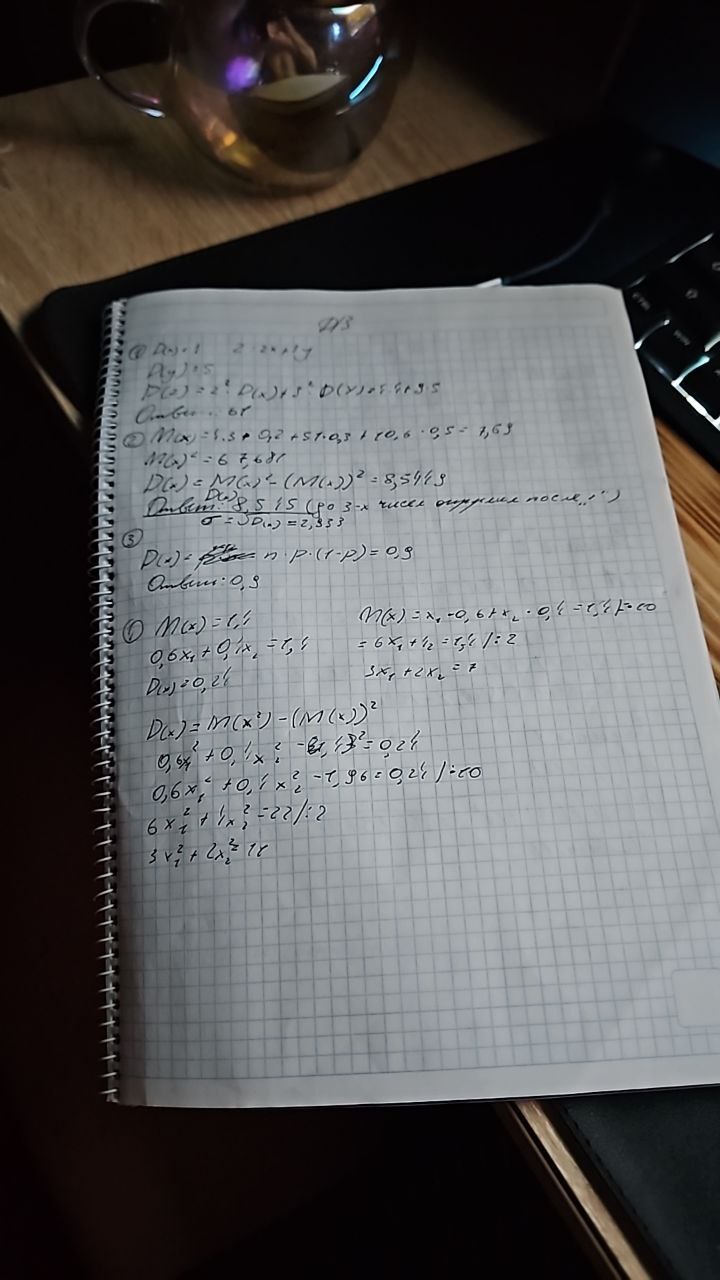 ДЗ
① D(x)=4 Z=2x+3y
D(y)=5
D(z)=2²·D(x)+3²·D(y)=4·4+9·5
Ответ: 61
② M(x)=4.3·0,2+51·0,3+10,6·0,5=7,69
M(x)²=67,681
D(x)=M(x)²-(M(x))²=8,5449
Ответ: D(x) 8,545 (до 3-х чисел округлил после ",")
σ=√D(x)=2,933
③
D(x)= n·p·(1-p)=0,9
Ответ: 0,9
④ M(x)=1,4
0,6x₁+0,4x₂=1,4
D(x)=0,24
M(x)=x₁·0,6+x₂·0,4=1,4 /·10
=6x₁+4₂=1,4/:2
3x₁+2x₂=7
D(x)=M(x²)-(M(x))²
0,6x₁²+0,4x₂²-1,4²=0,24
0,6x₁²+0,4x₂²-1,96=0,24/·10
6x₁²+4x₂²=22/:2
3x₁²+2x₂²=11